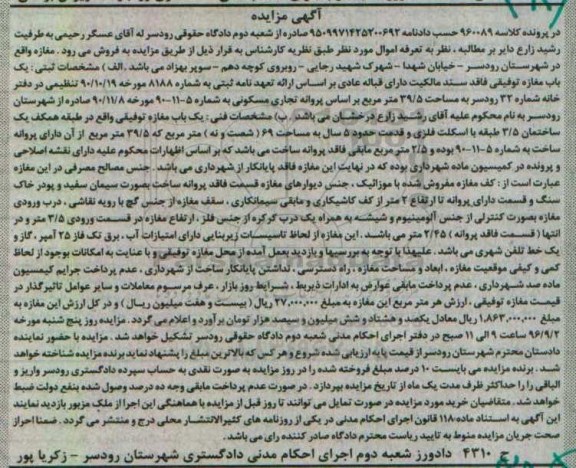 آگهی مزایده
در پرونده کلاسه ۹۶۰۰۸۹ حسب دادنامه ۹۵۰۹۹۷۱۴۲۵۲۰۰۶۹۲ صادره از شعبه دوم دادگاه حقوقی رودسر له آقای عسگر رحیمی به طرفیت
رشید زارع دایر بر مطالبه ، نظر به تعرفه اموال مورد نظر طبق نظریه کارشناس به قرار ذیل از طریق مزایده به فروش می رود . مغازه واقع
در شهرستان رودسر – خیابان شهدا – شهرک شهید رجایی – روبروی کوچه دهم – سوپر بهزاد می باشد . الف ) مشخصات ثبتی : یک
باب مغازه توقیفی فاقد سند مالکیت دارای قباله عادی بر اساس ارائه تعهد نامه ثبتی به شماره ۸۱۸۸ مورخه ۹۰/۱۰/۱۹ تنظیمی در دفتر
خانه شماره ۳۲ رودسر به مساحت ۳۹/۵ متر مربع بر اساس پروانه تجاری مسکونی به شماره ۵-۱۱-۹۰ مورخه ۹۰/۱۱/۸ صادره از شهرستان
رودسر به نام محکوم علیه آقای رشید زارع درخشان می باشد . ب) مشخصات فنی : یک باب مغازه توقیفی واقع در طبقه همکف یک
ساختمان ۳/۵ طبقه با اسکلت فلزی و قدمت حدود ۵ سال به مساحت ۶۹ ( شصت و نه ) متر مربع که ۳۹/۵ متر مربع از آن دارای پروانه
ساخت به شماره ۵-۱۱-۹۰ بوده و ۲/۵ متر مربع مابقی فاقد پروانه ساخت می باشد که بر اساس اظهارات محکوم علیه دارای نقشه اصلاحی
و پرونده در کمیسیون ماده شهرداری بوده که در نهایت این مغازه فاقد پایانکار از شهرداری می باشد . جنس مصالح مصرفی در این مغازه
عبارت است از : کف مغازه مفروش شده با موزائیک ، جنس دیوارهای مغازه قسمت فاقد پروانه ساخت بصورت سیمان سفید و پودر خاک
سنگ و قسمت دارای پروانه تا ارتفاع ۲ متر از کف کاشیکاری و مابقی سیمانکاری ، سقف مغازه از جنس گچ با رویه نقاشی ، درب ورودی
مغازه بصورت کنترلی از جنس آلومینیوم و شیشه به همراه یک درب کرکره از جنس فلز ، ارتفاع مغازه در قسمت ورودی ۳/۵ متر و در
انتها ( قسمت فاقد پروانه ) ۲/۴۵ متر می باشد . این مغازه از لحاظ تاسیسات زیربنایی دارای امتیازات آب ، برق تک فاز ۲۵ آمپر ، گاز و
یک خط تلفن شهری می باشد . علیهذا با توجه به بررسیها و بازدید بعمل آمده از محل مغازه توقیفی و با عنایت به امکانات بوجود از لحاظ
کمی و کیفی موقعیت مغازه ، ابعاد و مساحت مغازه ، راه دسترسی ، نداشتن پایانکار ساخت از شهرداری ، عدم پرداخت جرایم کمیسیون
ماده صد شهرداری ، عدم پرداخت مابقی عوارض به ادارات ذیربط ، شرایط روز بازار ، عرف مرسوم معاملات و سایر عوامل تاثیرگذار در
قیمت مغازه توقیفی ، ارزش هر متر مربع این مغازه به مبلغ ۲۷,۰۰۰,۰۰۰ ریال ( بیست و هفت میلیون ریال ) و در کل ارزش این مغازه به
مبلغ ۱,۸۶۳,۰۰۰,۰۰۰ ریال معادل یکصد و هشتاد و شش میلیون و سیصد هزار تومان برآورد و اعلام می گردد . مزایده روز پنج شنبه مورخه
۹۶/۹/۲ ساعت ۹ الی ۱۱ صبح در دفتر اجرای احکام مدنی شعبه دوم دادگاه حقوقی رودسر تشکیل خواهد شد . مزایده با حضور نماینده
دادستان محترم شهرستان رودسر از قیمت پایه ارزیابی شده شروع و هر کس که بالاترین مبلغ را پیشنهاد نماید برنده مزایده شناخته خواهد
شد . برنده مزایده می بایست ۱۰ درصد مبلغ فروخته شده را در روز مزایده به صورت نقدی به حساب سپرده دادگستری رودسر واریز و
الباقی را حداکثر ظرف مدت یک ماه از تاریخ مزایده بپردازد . در صورت عدم پرداخت مابقی وجه ده درصد وصول شده بنفع دولت ضبط
خواهد شد . متقاضیان خرید مورد مزایده در صورت تمایل می توانند تا روز قبل از مزایده با هماهنگی این اجرا از ملک مزبور بازدید نمایند
این آگهی به استناد ماده ۱۱۸ قانون اجرای احکام مدنی در یکی از روزنامه های کثیرالانتشار محلی درج و منتشر می گردد . ضمنا احراز
صحت جریان مزایده منوط به تایید ریاست محترم دادگاه صادر کننده رای می باشد .
ح ۴۳۱۰ دادورز شعبه دوم اجرای احکام مدنی دادگستری شهرستان رودسر – زکریا پور